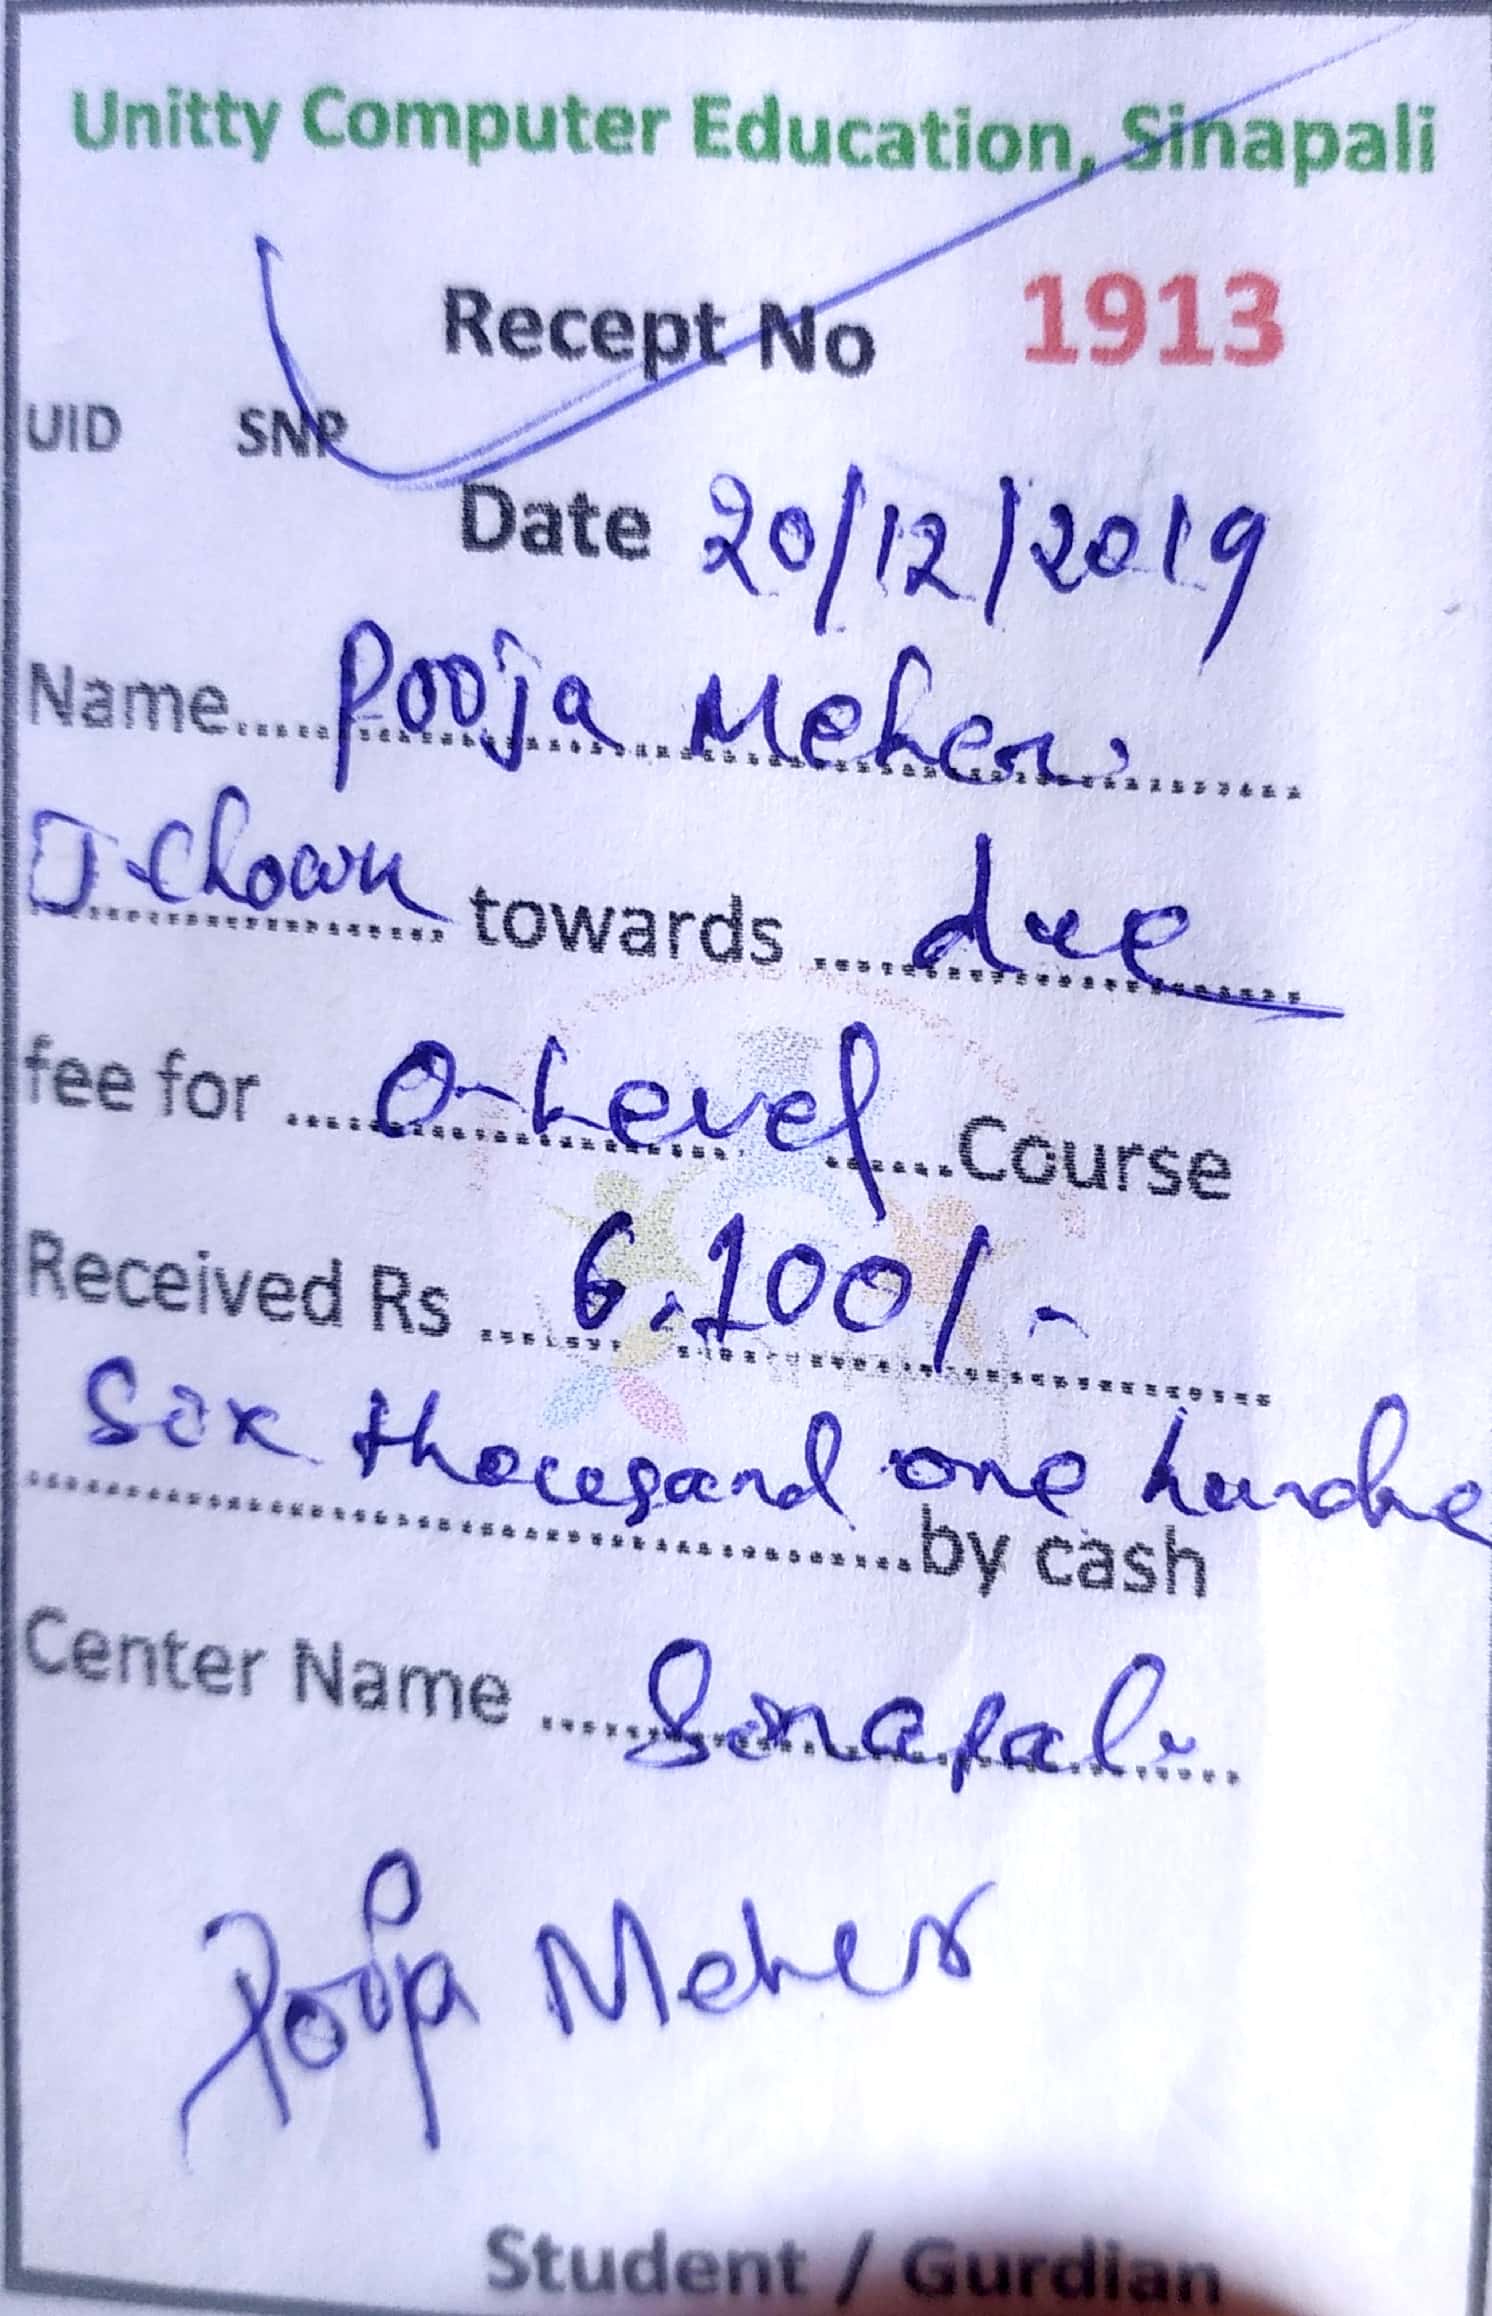 Unitty Computer Education, Sinapali
Recept No 1913
UID SNP
Date 20/12/2019
Name..... Pooja Meher.
J-chowk towards .... due
fee for .... O-Level ......Course
Received Rs .... 6,100/-
Six thousand one hundre
by cash
Center Name ..... Sinapali
Pooja Meher
Student / Gurdian